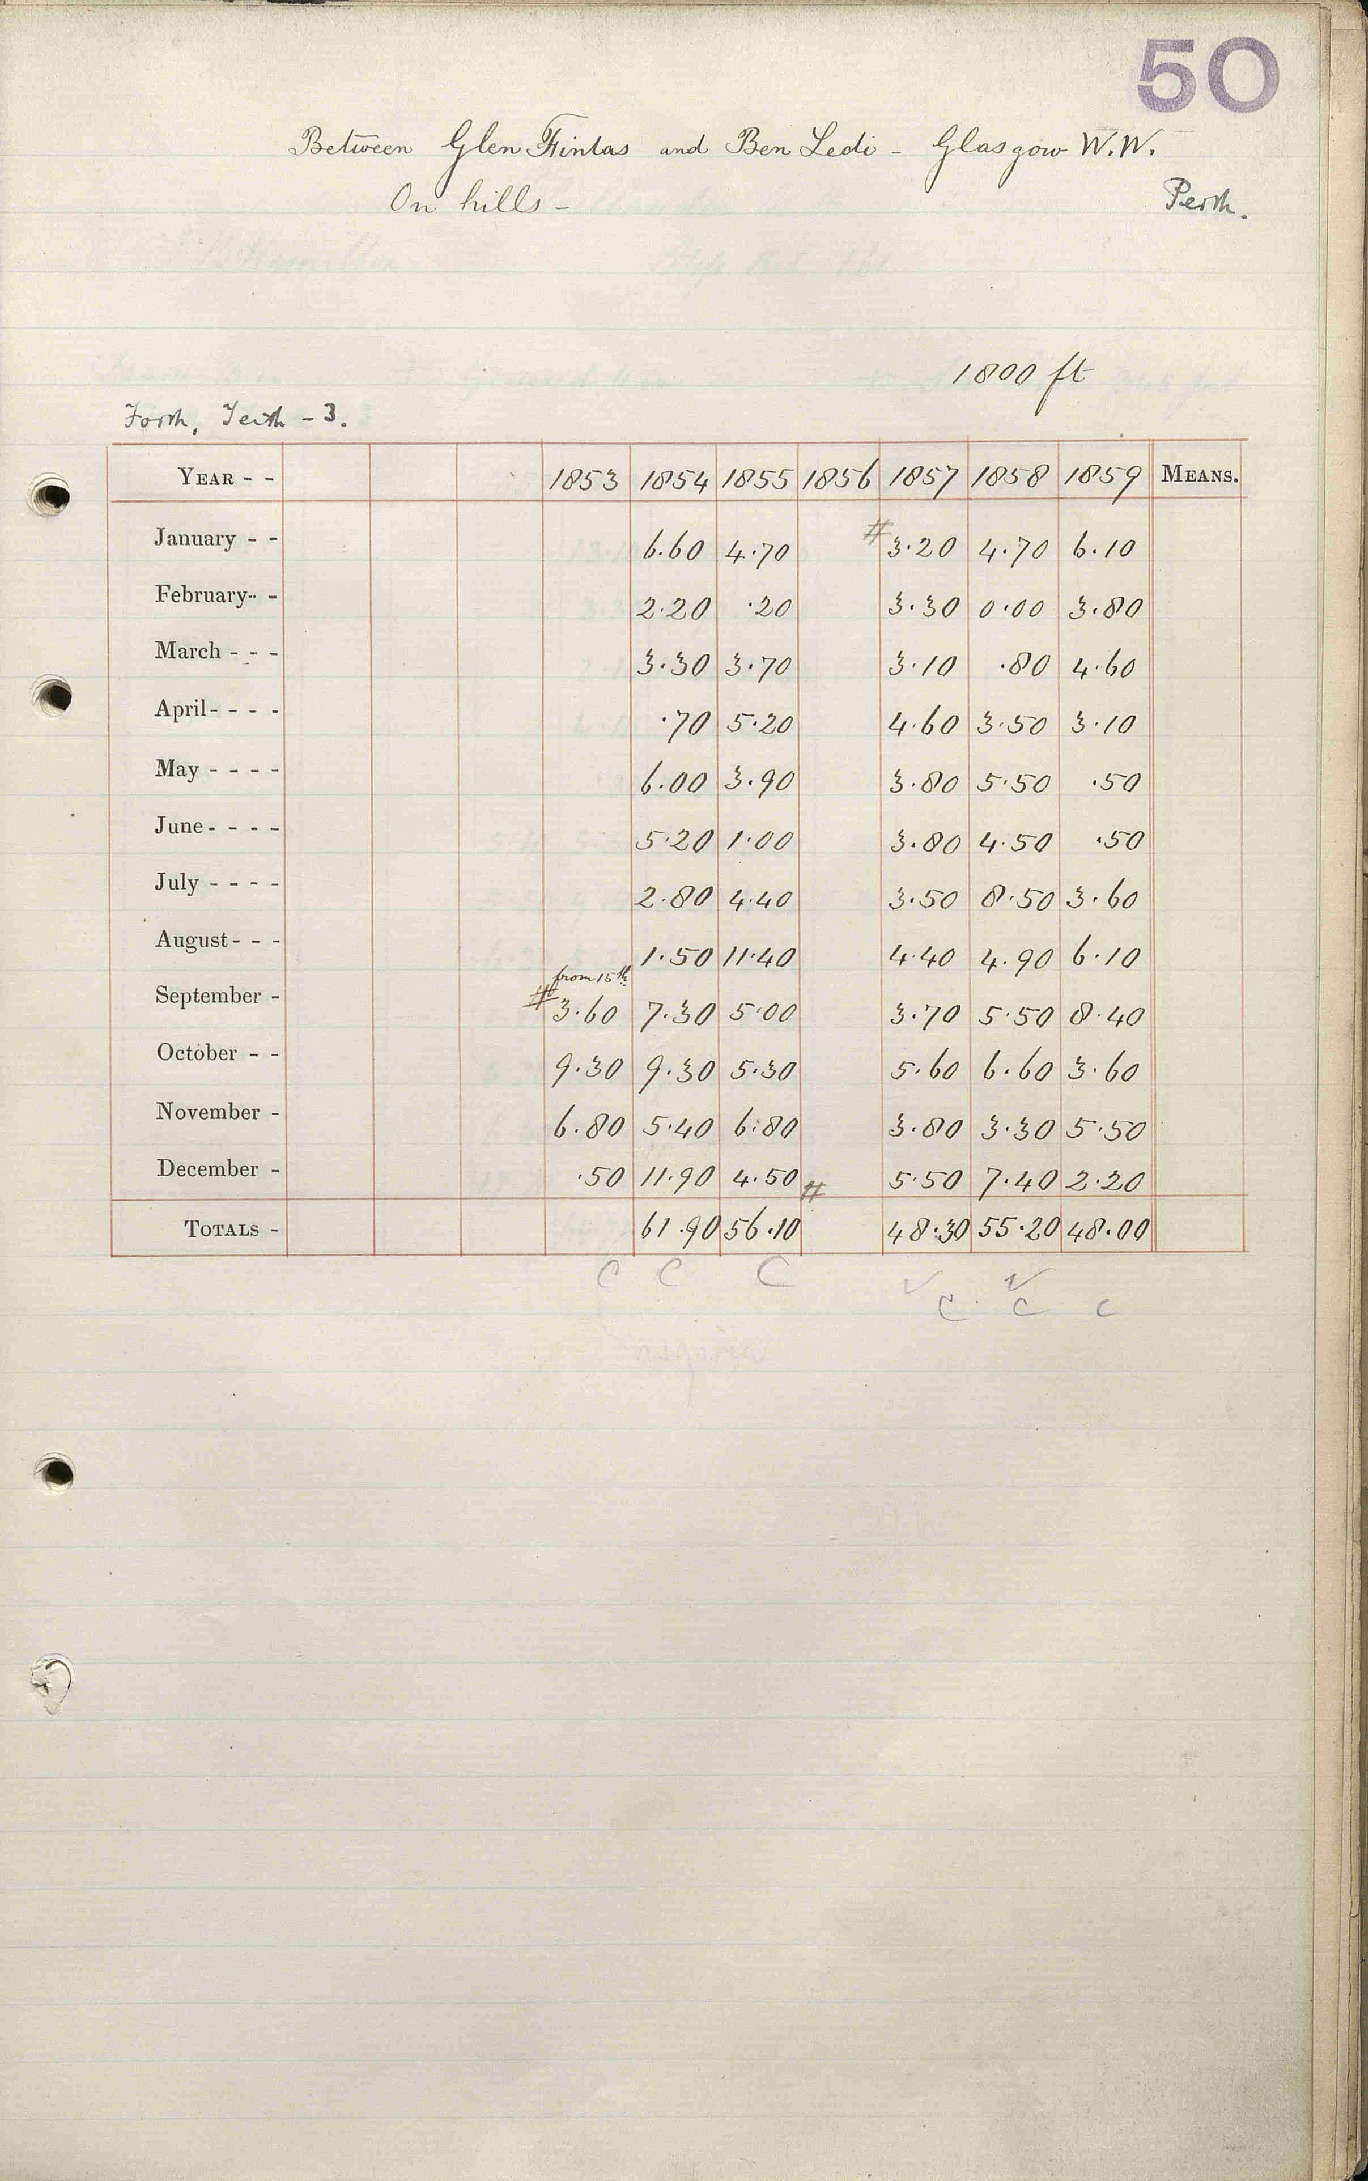 50
Between Glen Fintas and Ben Ledi - Glasgow W.W.
On hills - Perth.
1800 ft
Forth, Teith - 3.
YEAR - - 1853 1854 1855 1856 1857 1858 1859 MEANS.
January - - 6.60 4.70 # 3.20 4.70 6.10
February - - 2.20 .20 3.30 0.00 3.80
March - - - 3.30 3.70 3.10 .80 4.60
April - - - - .70 5.20 4.60 3.50 3.10
May - - - - 6.00 3.90 3.80 5.50 .50
June - - - - 5.20 1.00 3.80 4.50 .50
July - - - - 2.80 4.40 3.50 8.50 3.60
August - - - 1.50 11.40 4.40 4.90 6.10
from 15th
September - # 3.60 7.30 5.00 3.70 5.50 8.40
October - - 9.30 9.30 5.30 5.60 6.60 3.60
November - 6.80 5.40 6.80 3.80 3.30 5.50
December - .50 11.90 4.50 # 5.50 7.40 2.20
TOTALS - 61.90 56.10 48.30 55.20 48.00
C C C ✓ ✓
C C C